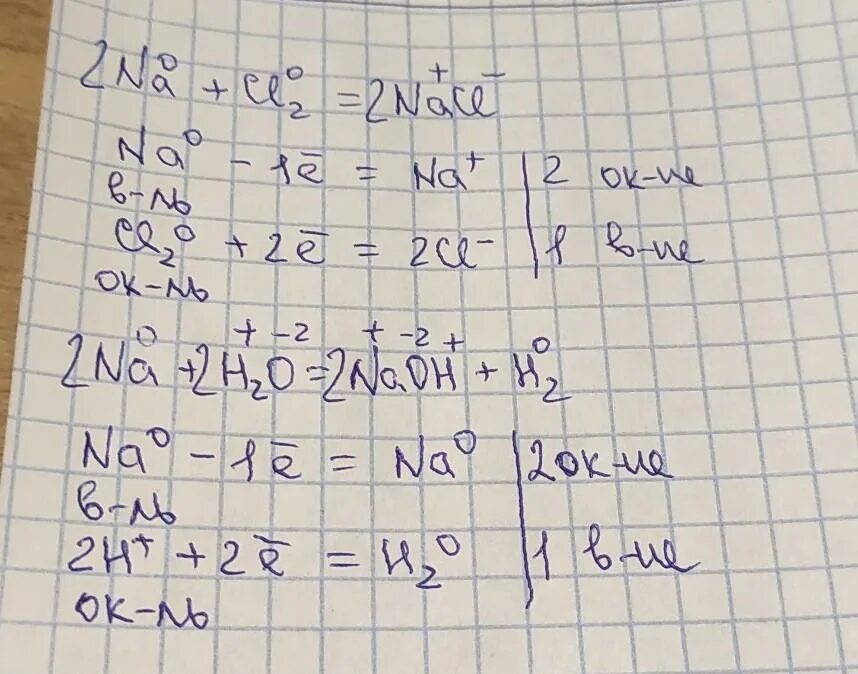 2Na⁰ + Cl₂⁰ = 2Na⁺Cl⁻
Na⁰ - 1ē = Na⁺ | 2 ок-ие
в-ль
Cl₂⁰ + 2ē = 2Cl⁻ | 1 в-ие
ок-ль
2Na⁰ + 2H₂⁺O⁻² = 2Na⁺O⁻²H⁺ + H₂⁰
Na⁰ - 1ē = Na⁰ | 2 ок-ие
в-ль
2H⁺ + 2ē = H₂⁰ | 1 в-ие
ок-ль